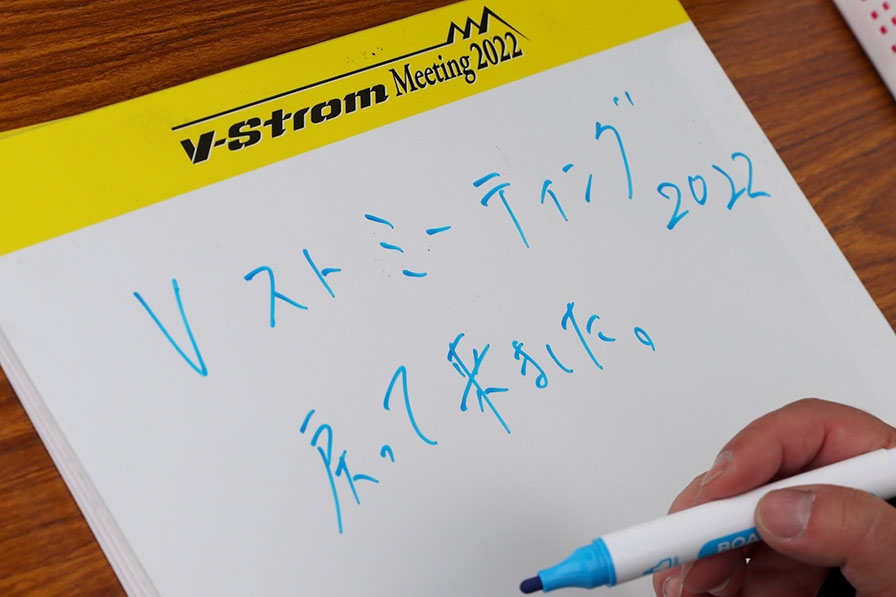 V-Strom Meeting 2022
Vストミーティング 2022
戻って来ました。
BOA